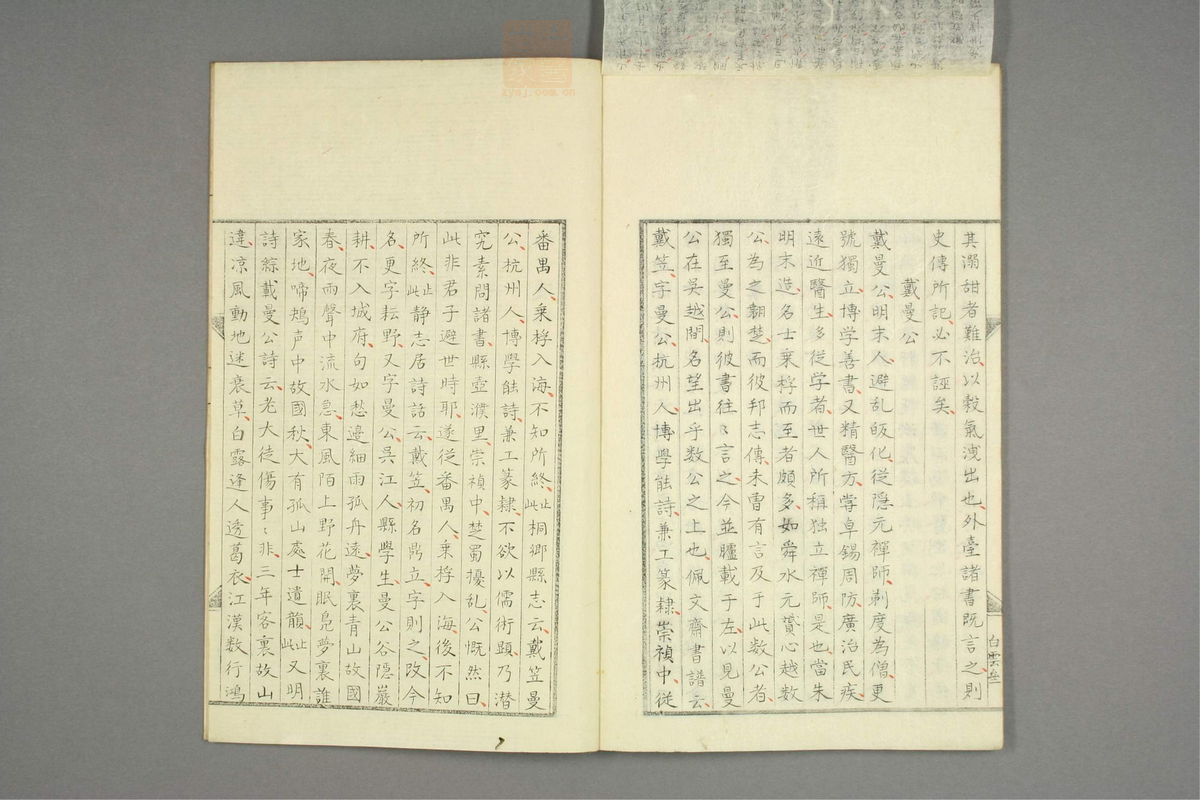 其溺甜者難治、以穀氣洩出也、外臺諸書既言之、則
史傳所記、必不誣矣、
戴曼公
戴曼公、明末人、避乱皈化、從隠元禪師、剃度為僧、更
號獨立、博学善書、又精醫方、嘗卓錫周防、廣治民疾、
遠近醫生、多從学者、世人所稱独立禪師、是也、當朱
明末造、名士乗桴而至者頗多、如舜水元贇心越数
公、為之翹楚、而彼邦志傳、未曹有言及于此数公者、
獨至曼公、則彼書往〻言之、今並臚載于左、以見曼
公在呉越間、名望出乎数公之上也、佩文齋書譜云、
戴笠、字曼公、杭州人、博學能詩、兼工篆隷、崇禎中、從
白雲
番禺人、乗桴入海、不知所終、止此桐郷縣志云、戴笠曼
公、杭州人、博學能詩、兼工篆隷、不欲以儒術顕、乃潜
究素問諸書、縣壺濮里、崇禎中、楚蜀擾乱、公慨然曰、
此非君子避世時耶、遂従番禺人、乗桴入海、後不知
所終、止此静志居詩話云、戴笠、初名鼎立、字則之、改今
名、更字耘野、又字曼公、呉江人、縣學生、曼公谷隠巖
耕、不入城府、句如愁邉細雨孤舟遠、夢裏青山故國
春、夜雨聲中流水急、東風陌上野花開、眠鳧夢裏誰
家地、啼鴂声中故國秋、大有孤山處士遺韻、止此又明
詩綜戴曼公詩云、老大徒傷事〻非、三年客裏故山
違、凉風動地迷衰草、白露逢人透葛衣、江漢数行鴻